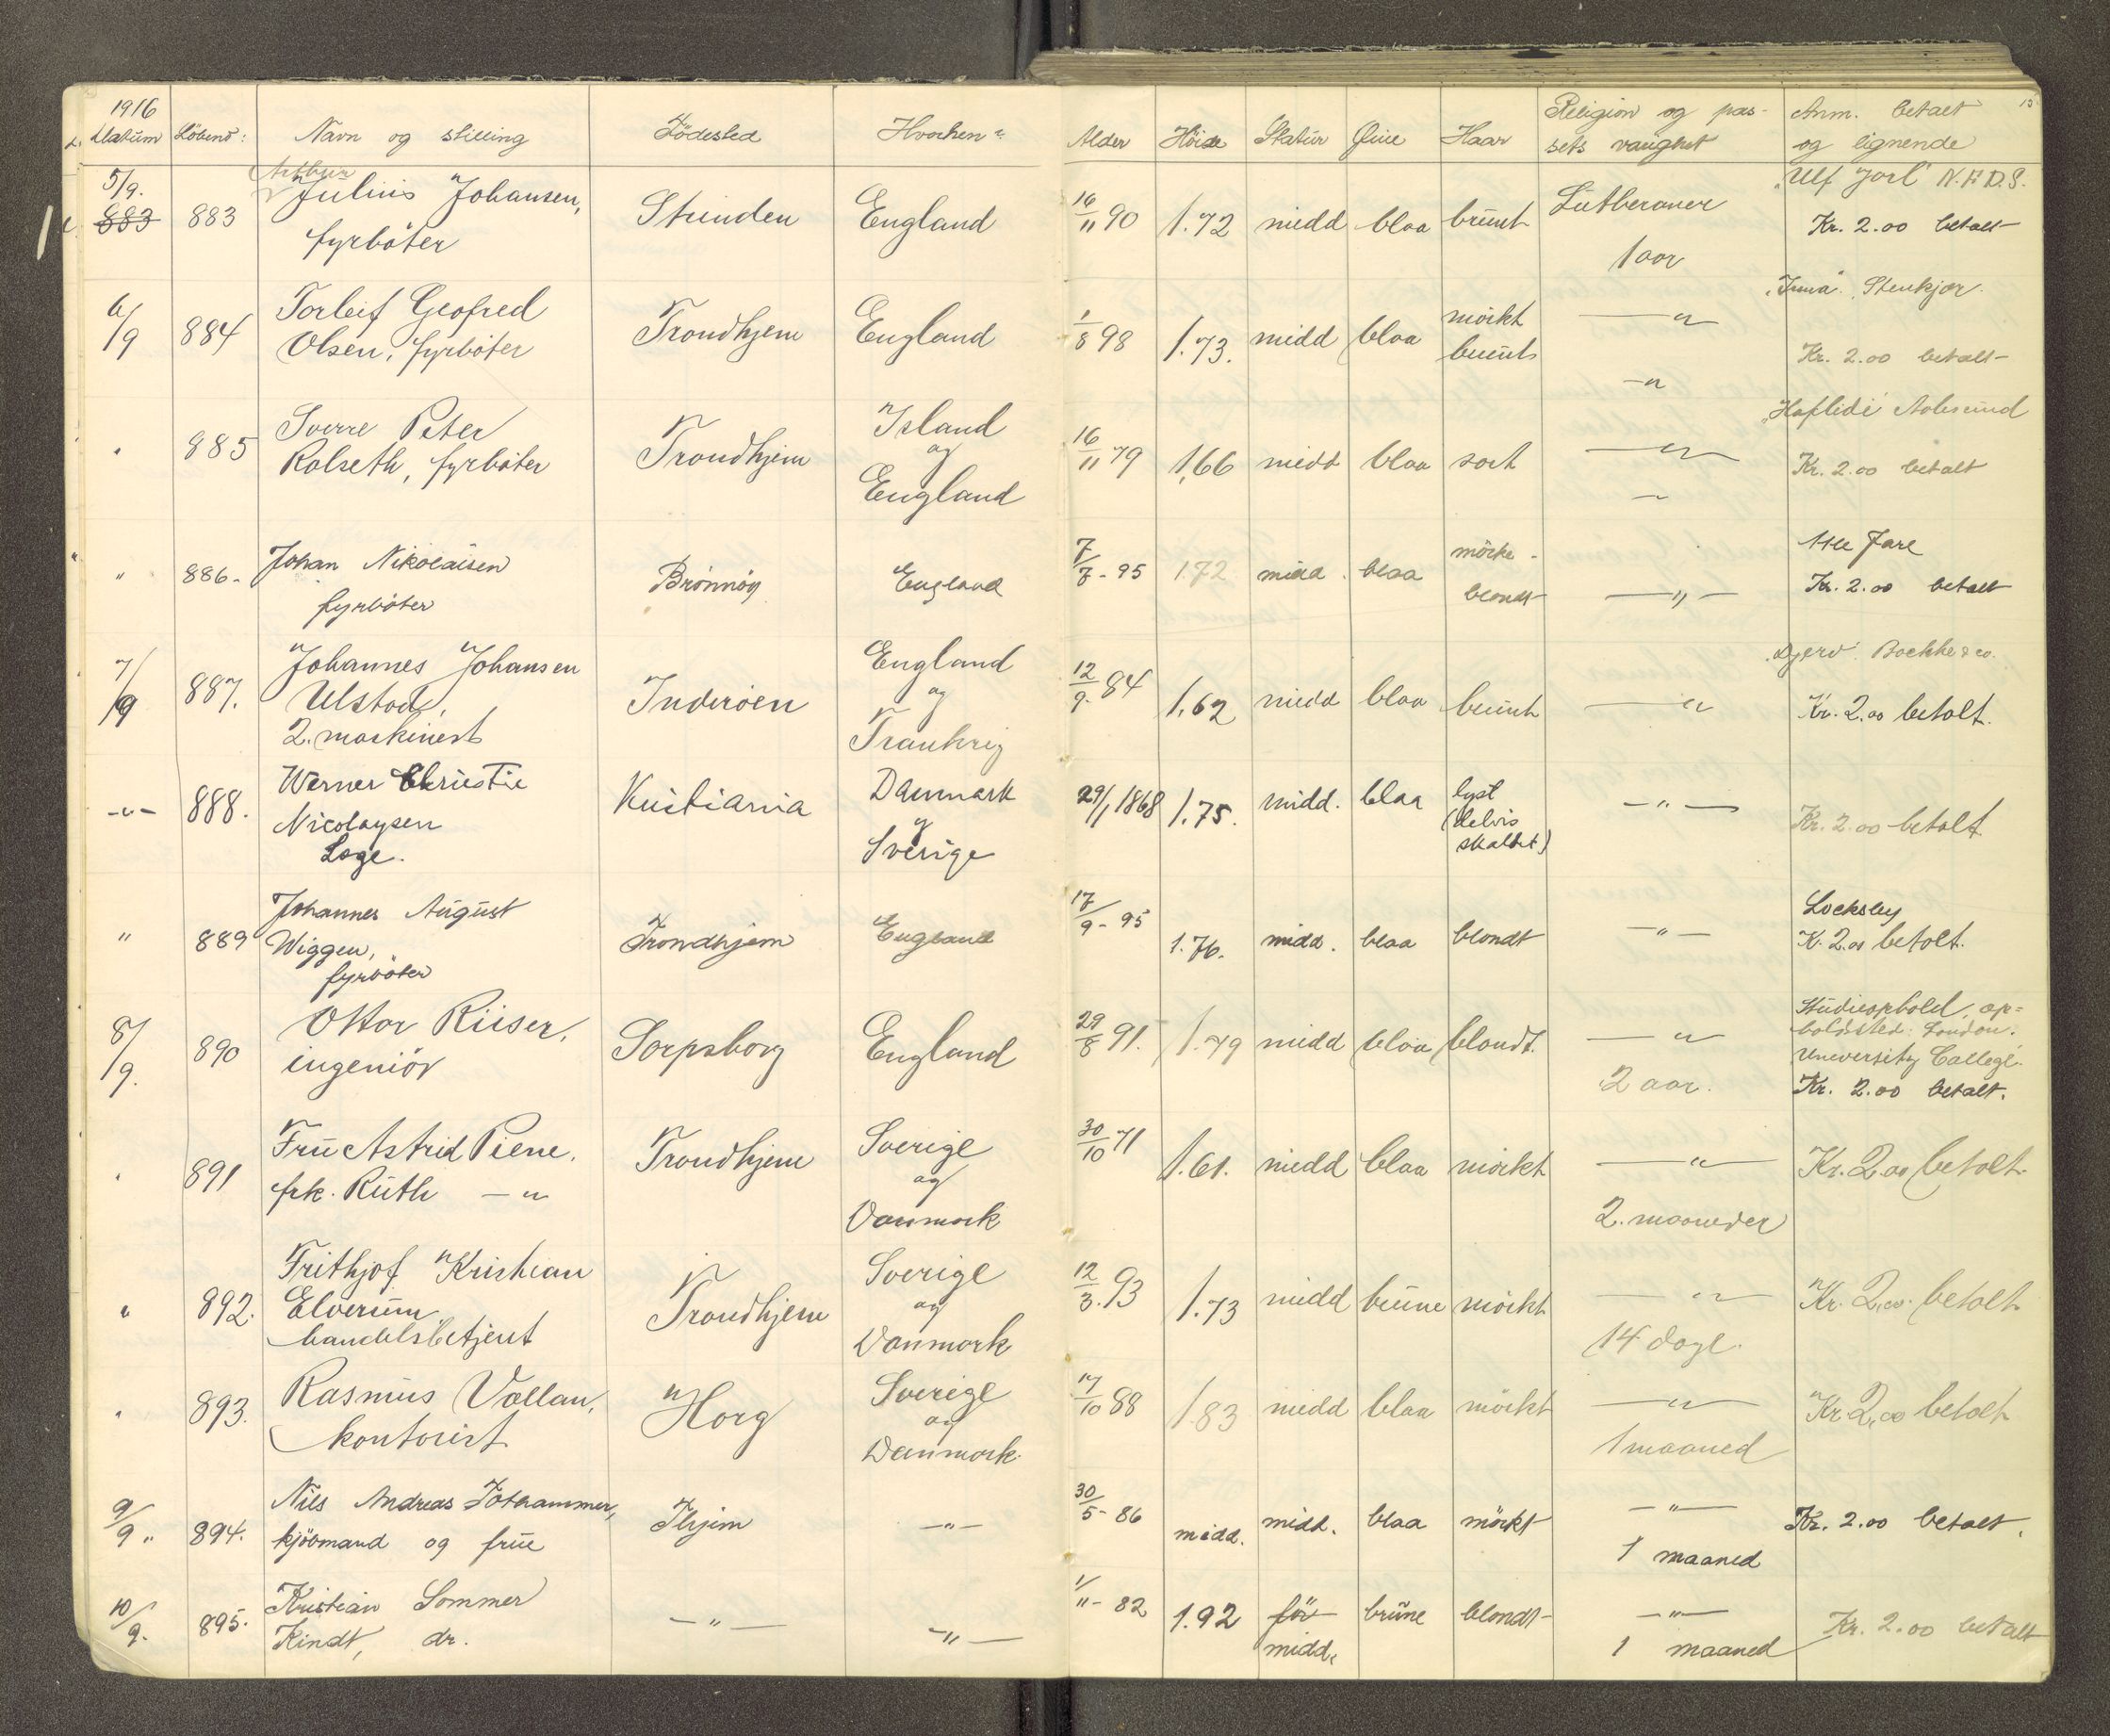 1916
Datum Löbenо: Navn og stilling Födested Hvorhen? Alder Höide Statur Öine Haar Religion og passets varighet Anm. betalt og lignende 15
5/9. 883 883 Arthur Julius Johansen, fyrböter Strinden England 16/11 90 1.72 midd blaa brunt Lutheraner 1 aar "Ulf Jarl" N.F.D.S. Kr. 2.00 betalt
6/9 884 Torleif Geofred Olsen, fyrböter Trondhjem England 1/8 98 1.73. midd blaa mörkt brunt —"— —"— Stenkjær. Kr. 2.00 betalt
" 885 Sverre Peter Rolseth, fyrböter Trondhjem Island og England 16/11 79 1,66 midd blaa sort —"— — Haflidi Aalesund Kr. 2.00 betalt
" 886. Johan Nikolaisen fyrböter Brönnöy England 7/7-95 172 midd. blaa mörke-blondt —"— Kr. 2.00 betalt
7/9 887. Johannes Johansen Ulstad, 2. maskinist Inderöen England og Frankrig 12/9. 84 1,62 midd blaa brunt —"— Djerv. Bachke & co. Kr. 2.00 betalt.
-"- 888. Werner Christie Nicolaysen Læge. Kristiania Danmark og Sverige 29/1 1868 1.75. midd. blaa lyst (delvis skaldet) —"— Kr. 2.00 betalt.
" 889 Johannes August Wiggen, fyrböter Trondhjem England 17/9-95 1.76. midd. blaa blondt —"— Locksley K. 2.00 betalt.
8/9. 890 Ottar Riiser, ingeniör Sarpsborg England 29/8 91. 1.79 midd blaa blondt. —"— 2 aar. Studieophold, opholdsted: London. University College. Kr. 2.00 betalt.
" 891 Fru Astrid Piene, frk. Ruth —"— Trondhjem Sverige og Danmark 30/10 71 1.61. midd blaa mörkt —"— 2. maaneder Kr. 2.00 betalt
" 892. Frithjof Kristian Elverum, handelsbetjent Trondhjem Sverige og Danmark 12/3. 93 1.73 midd brune mörkt —"— 14 dage. Kr. 2.00. betalt
" 893. Rasmus Vollan, kontorist Horg Sverige og Danmark. 17/10 88 1.83 midd blaa mörkt —"— 1 maaned Kr. 2,00 betalt
9/9 " 894. Nils Andreas kjöbmand og frue Thjem —"— 30/5-86 midd. midd. blaa mörkt —"— 1 maaned Kr. 2.00 betalt.
10/9. 895. Kristian Sommer Kindt, dr. —"— —"— 1/11-82 1.92 för midd. brune blondt —"— 1 maaned Kr. 2.00 betalt